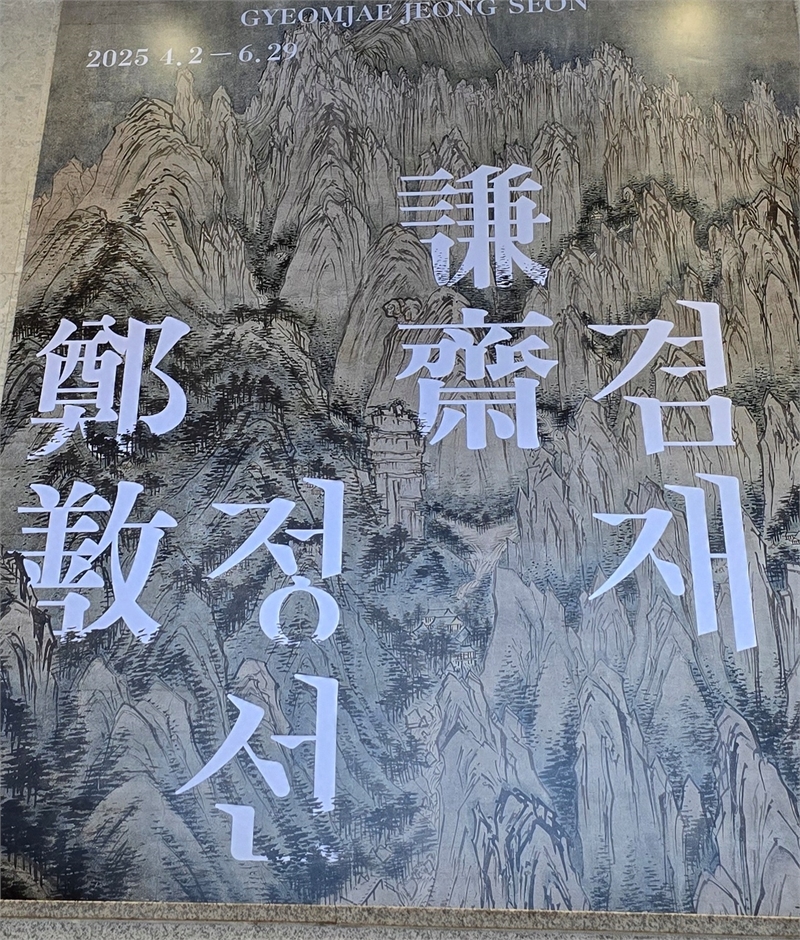 GYEOMJAE JEONG SEON
2025 4. 2 – 6. 29
겸재
謙齋
정선
鄭敾